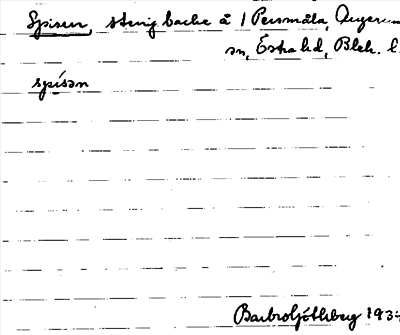 Spisen, stenig backe å 1 Persmåla, Augerum
sn, Östra hd, Blek. l.
spisen
Barbro Götheberg 193